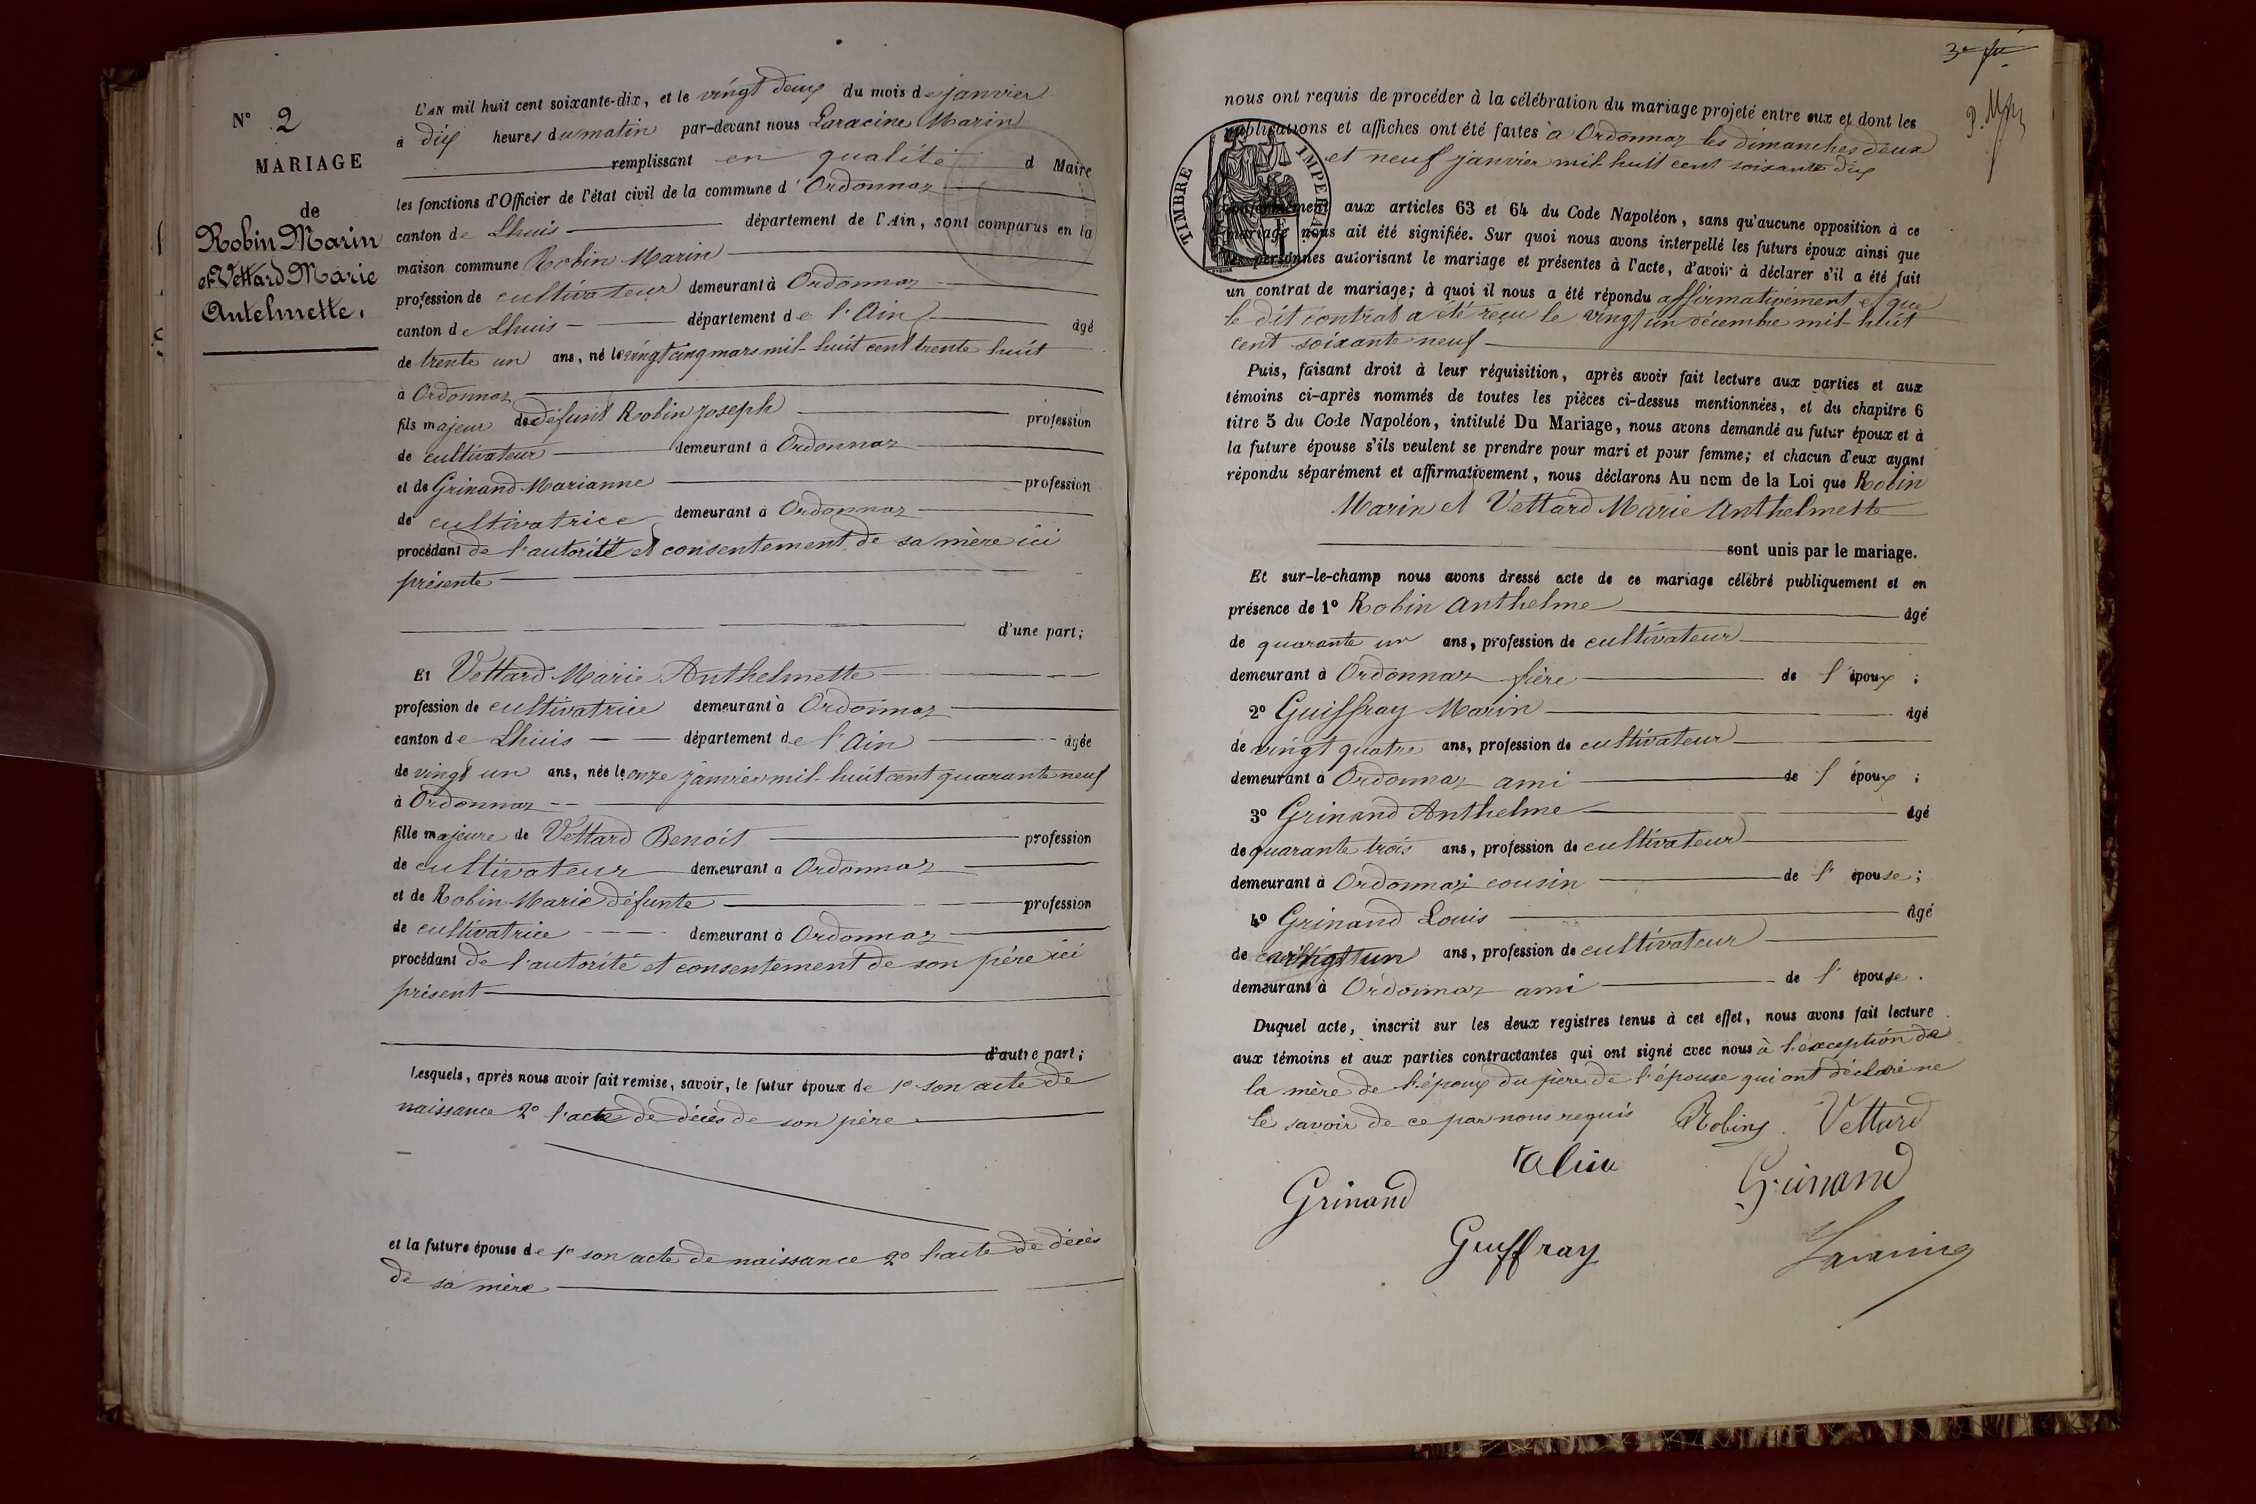 N° 2
MARIAGE
de
Robin Marin
et Vettard Marie
Antelmette.
L'AN mil huit cent soixante-dix, et le vingt deux du mois de janvier
à dix heures du matin par-devant nous Laracine Marin
remplissant en qualité d Maire
les fonctions d'Officier de l'état civil de la commune d' Ordonnaz
canton de Lhuis département de l'Ain, sont comparus en la
maison commune Robin Marin
profession de cultivateur demeurant à Ordonnaz
canton de Lhuis département de l'Ain âgé
de trente un ans, né le vingt cinq mars mil huit cent trente huit
à Ordonnaz
fils majeur de défunt Robin Joseph profession
de cultivateur demeurant à Ordonnaz
et de Grinand Marianne profession
de cultivatrice demeurant à Ordonnaz
procédant de l'autorité et consentement de sa mère ici
présente
d'une part;
Et Vettard Marie Anthelmette
profession de cultivatrice demeurant à Ordonnaz
canton de Lhuis département de l'Ain âgée
de vingt un ans, née le onze janvier mil huit cent quarante neuf
à Ordonnaz
fille majeure de Vettard Benoit profession
de cultivateur demeurant à Ordonnaz
et de Robin Marie défunte profession
de cultivatrice demeurant à Ordonnaz
procédant de l'autorité et consentement de son père ici
présent
d'autre part;
Lesquels, après nous avoir fait remise, savoir, le futur époux de 1° son acte de
naissance 2° l'acte de décès de son père
et la future épouse de 1° son acte de naissance 2° l'acte de décès
de sa mère
nous ont requis de procéder à la célébration du mariage projeté entre eux et dont les
publications et affiches ont été faites à Ordonnaz les dimanches deux
et neuf janvier mil huit cent soixante dix
TIMBRE IMPERIAL
conformément aux articles 63 et 64 du Code Napoléon, sans qu'aucune opposition à ce
mariage nous ait été signifiée. Sur quoi nous avons interpellé les futurs époux ainsi que
les personnes autorisant le mariage et présentes à l'acte, d'avoir à déclarer s'il a été fait
un contrat de mariage; à quoi il nous a été répondu affirmativement et que
le dit contrat a été reçu le vingt un décembre mil huit
cent soixante neuf
Puis, faisant droit à leur réquisition, après avoir fait lecture aux parties et aux
témoins ci-après nommés de toutes les pièces ci-dessus mentionnées, et du chapitre 6
titre 5 du Code Napoléon, intitulé Du Mariage, nous avons demandé au futur époux et à
la future épouse s'ils veulent se prendre pour mari et pour femme; et chacun d'eux ayant
répondu séparément et affirmativement, nous déclarons Au nom de la Loi que Robin
Marin et Vettard Marie Anthelmette
sont unis par le mariage.
Et sur-le-champ nous avons dressé acte de ce mariage célébré publiquement et en
présence de 1° Robin Anthelme âgé
de quarante un ans, profession de cultivateur
demeurant à Ordonnaz frère de l'époux;
2° Guiffray Marin âgé
de vingt quatre ans, profession de cultivateur
demeurant à Ordonnaz ami de l'époux;
3° Grinand Anthelme âgé
de quarante trois ans, profession de cultivateur
demeurant à Ordonnaz cousin de l'épouse;
4° Grinand Louis âgé
de vingt un ans, profession de cultivateur
demeurant à Ordonnaz ami de l'épouse.
Duquel acte, inscrit sur les deux registres tenus à cet effet, nous avons fait lecture
aux témoins et aux parties contractantes qui ont signé avec nous à l'exception de
la mère de l'époux du père de l'épouse qui ont déclaré ne
le savoir de ce par nous requis Robin Vettard
Grinand
Grinand
Guiffray
Laracine